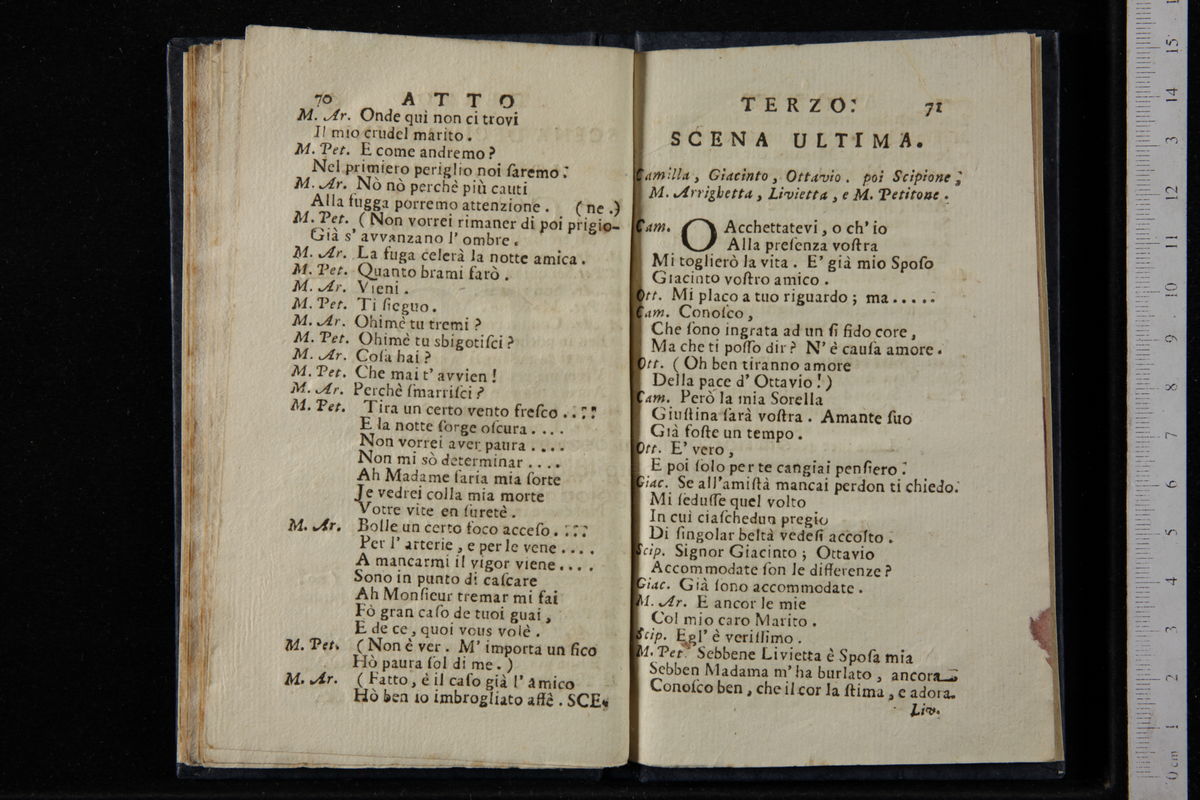 70 ATTO
M. Ar. Onde quì non ci trovi
Il mio crudel marito.
M. Pet. E come andremo?
Nel primiero periglio noi ſaremo.
M. Ar. Nò nò perchè più cauti
Alla fugga porremo attenzione. (ne.)
M. Pet. (Non vorrei rimaner di poi prigio-
Già s' avvanzano l' ombre.
M. Ar. La fuga celerà la notte amica.
M. Pet. Quanto brami farò.
M. Ar. Vieni.
M. Pet. Ti ſieguo.
M. Ar. Ohimè tu tremi?
M. Pet. Ohimè tu sbigotiſci?
M. Ar. Coſa hai?
M. Pet. Che mai t' avvien!
M. Ar. Perchè ſmarriſci?
M. Pet. Tira un certo vento freſco....
E la notte ſorge oſcura....
Non vorrei aver paura....
Non mi sò determinar....
Ah Madame ſaria mia ſorte
Je vedrei colla mia morte
Votre vite en ſuretè.
M. Ar. Bolle un certo foco acceſo....
Per l' arterie, e per le vene....
A mancarmi il vigor viene....
Sono in punto di caſcare
Ah Monſieur tremar mi fai
Fò gran caſo de tuoi guai,
E de ce, quoi vous volè.
M. Pet. (Non è ver. M' importa un fico
Hò paura ſol di me.)
M. Ar. (Fatto, è il caſo già l' amico
Hò ben io imbrogliato affè. SCE-
TERZO. 71
SCENA ULTIMA.
Camilla, Giacinto, Ottavio. poi Scipione;
M. Arrighetta, Livietta, e M. Petitone.
Cam. O Acchettatevi, o ch' io
Alla preſenza voſtra
Mi toglierò la vita. E' già mio Spoſo
Giacinto voſtro amico.
Ott. Mi placo a tuo riguardo; ma.....
Cam. Conoſco,
Che ſono ingrata ad un ſi fido core,
Ma che ti poſſo dir? N' è cauſa amore.
Ott. (Oh ben tiranno amore
Della pace d' Ottavio!)
Cam. Però la mia Sorella
Giuſtina ſarà voſtra. Amante ſuo
Già foſte un tempo.
Ott. E' vero,
E poi ſolo per te cangiai penſiero.
Giac. Se all' amiſtà mancai perdon ti chiedo.
Mi ſeduſſe quel volto
In cui ciaſchedun pregio
Di ſingolar beltà vedeſi accolto.
Scip. Signor Giacinto; Ottavio
Accommodate ſon le differenze?
Giac. Già ſono accommodate.
M. Ar. E ancor le mie
Col mio caro Marito.
Scip. Egl' è veriſſimo.
M. Pet. Sebbene Livietta è Spoſa mia
Sebben Madama m' ha burlato, ancora
Conoſco ben, che il cor la ſtima, e adora.
Liv.